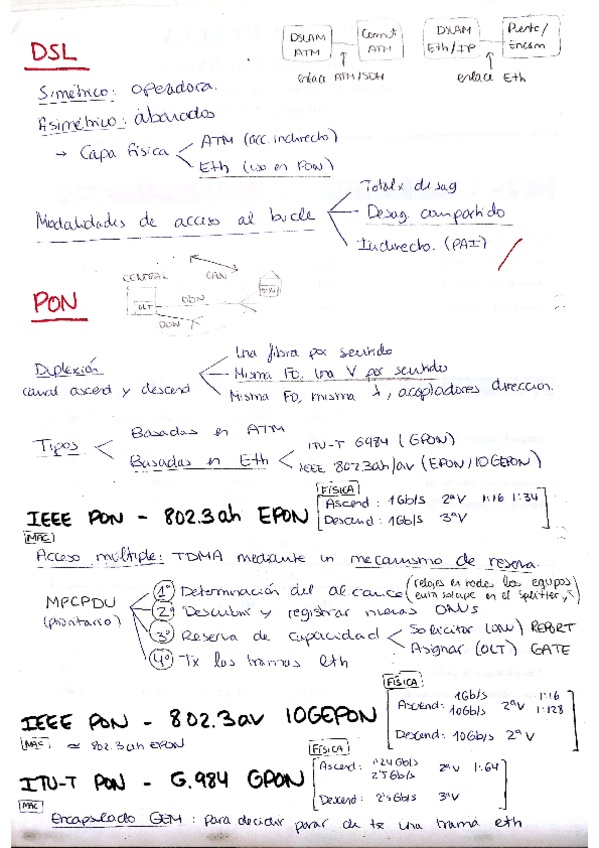 DSL
DSLAM ATM
Conmut ATM
enlace ATM/SDH
DSLAM Eth/IP
Puente/Encam
enlace Eth
Simétrico: operadora.
Asimétrico: abonados
→ Capa física
ATM (acc. indirecto)
Eth (uso en PON)
Modalidades de acceso al bucle
Totalx desag
Desag. compartido
Indirecto. (PAI)
PON
CENTRAL
CAN
OLT
ODN
ODN
Duplexión
canal ascend y descend
Una fibra por sentido
Misma FO, una V por sentido
Misma FO, misma λ, acopladores direccion.
Tipos
Basadas en ATM
Basadas en Eth
ITU-T G984 (GPON)
IEEE 802.3ah/av (EPON/10GEPON)
IEEE PON - 802.3ah EPON
FÍSICA
Ascend: 1Gb/s 2ªV 1:16 1:34
Descend: 1Gb/s 3ªV
MAC
Acceso múltiple: TDMA mediante un mecanismo de reserva.
MPCPDU
(prioritario)
1º Determinación del alcance (relojes en todos los equipos
evita solape en el splitter)
2º Descubrir y registrar nuevas ONUs
3º Reserva de capacidad
Solicitar (ONU) REPORT
Asignar (OLT) GATE
4º Tx las tramas eth
IEEE PON - 802.3av 10GEPON
FÍSICA
Ascend: 1Gb/s 10Gb/s 2ªV 1:16 1:128
Descend: 10Gb/s 2ªV
MAC ≃ 802.3ah EPON
ITU-T PON - G.984 GPON
FÍSICA
Ascend: 1'24Gb/s 2'5Gb/s 2ªV 1:64
Descend: 2'5Gb/s 3ªV
MAC
Encapsulado GEM: para decidir parar de tx una trama eth